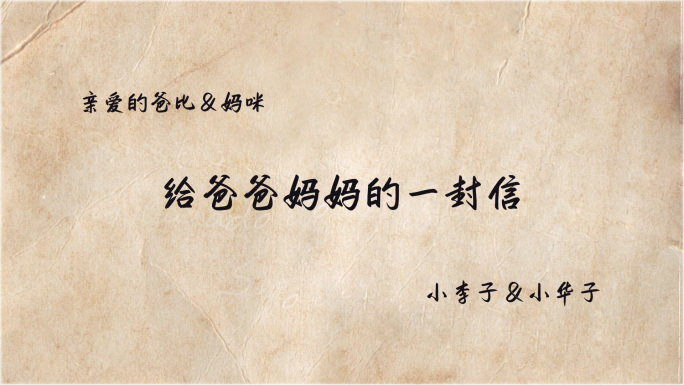 亲爱的爸比&妈咪
给爸爸妈妈的一封信
小李子&小华子